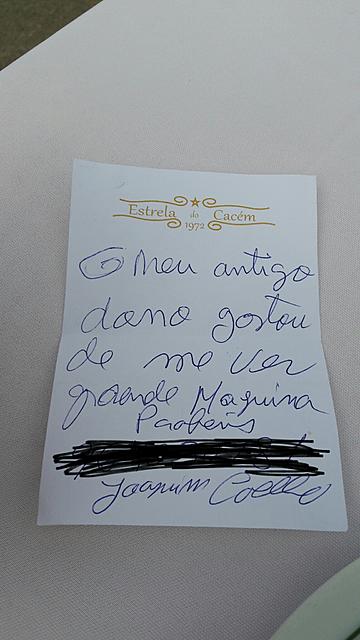 Estrela do Cacém
1972
O Meu antigo
dono gostou
de me ver
grande Maquina
Parabens
Joaquim Coelho